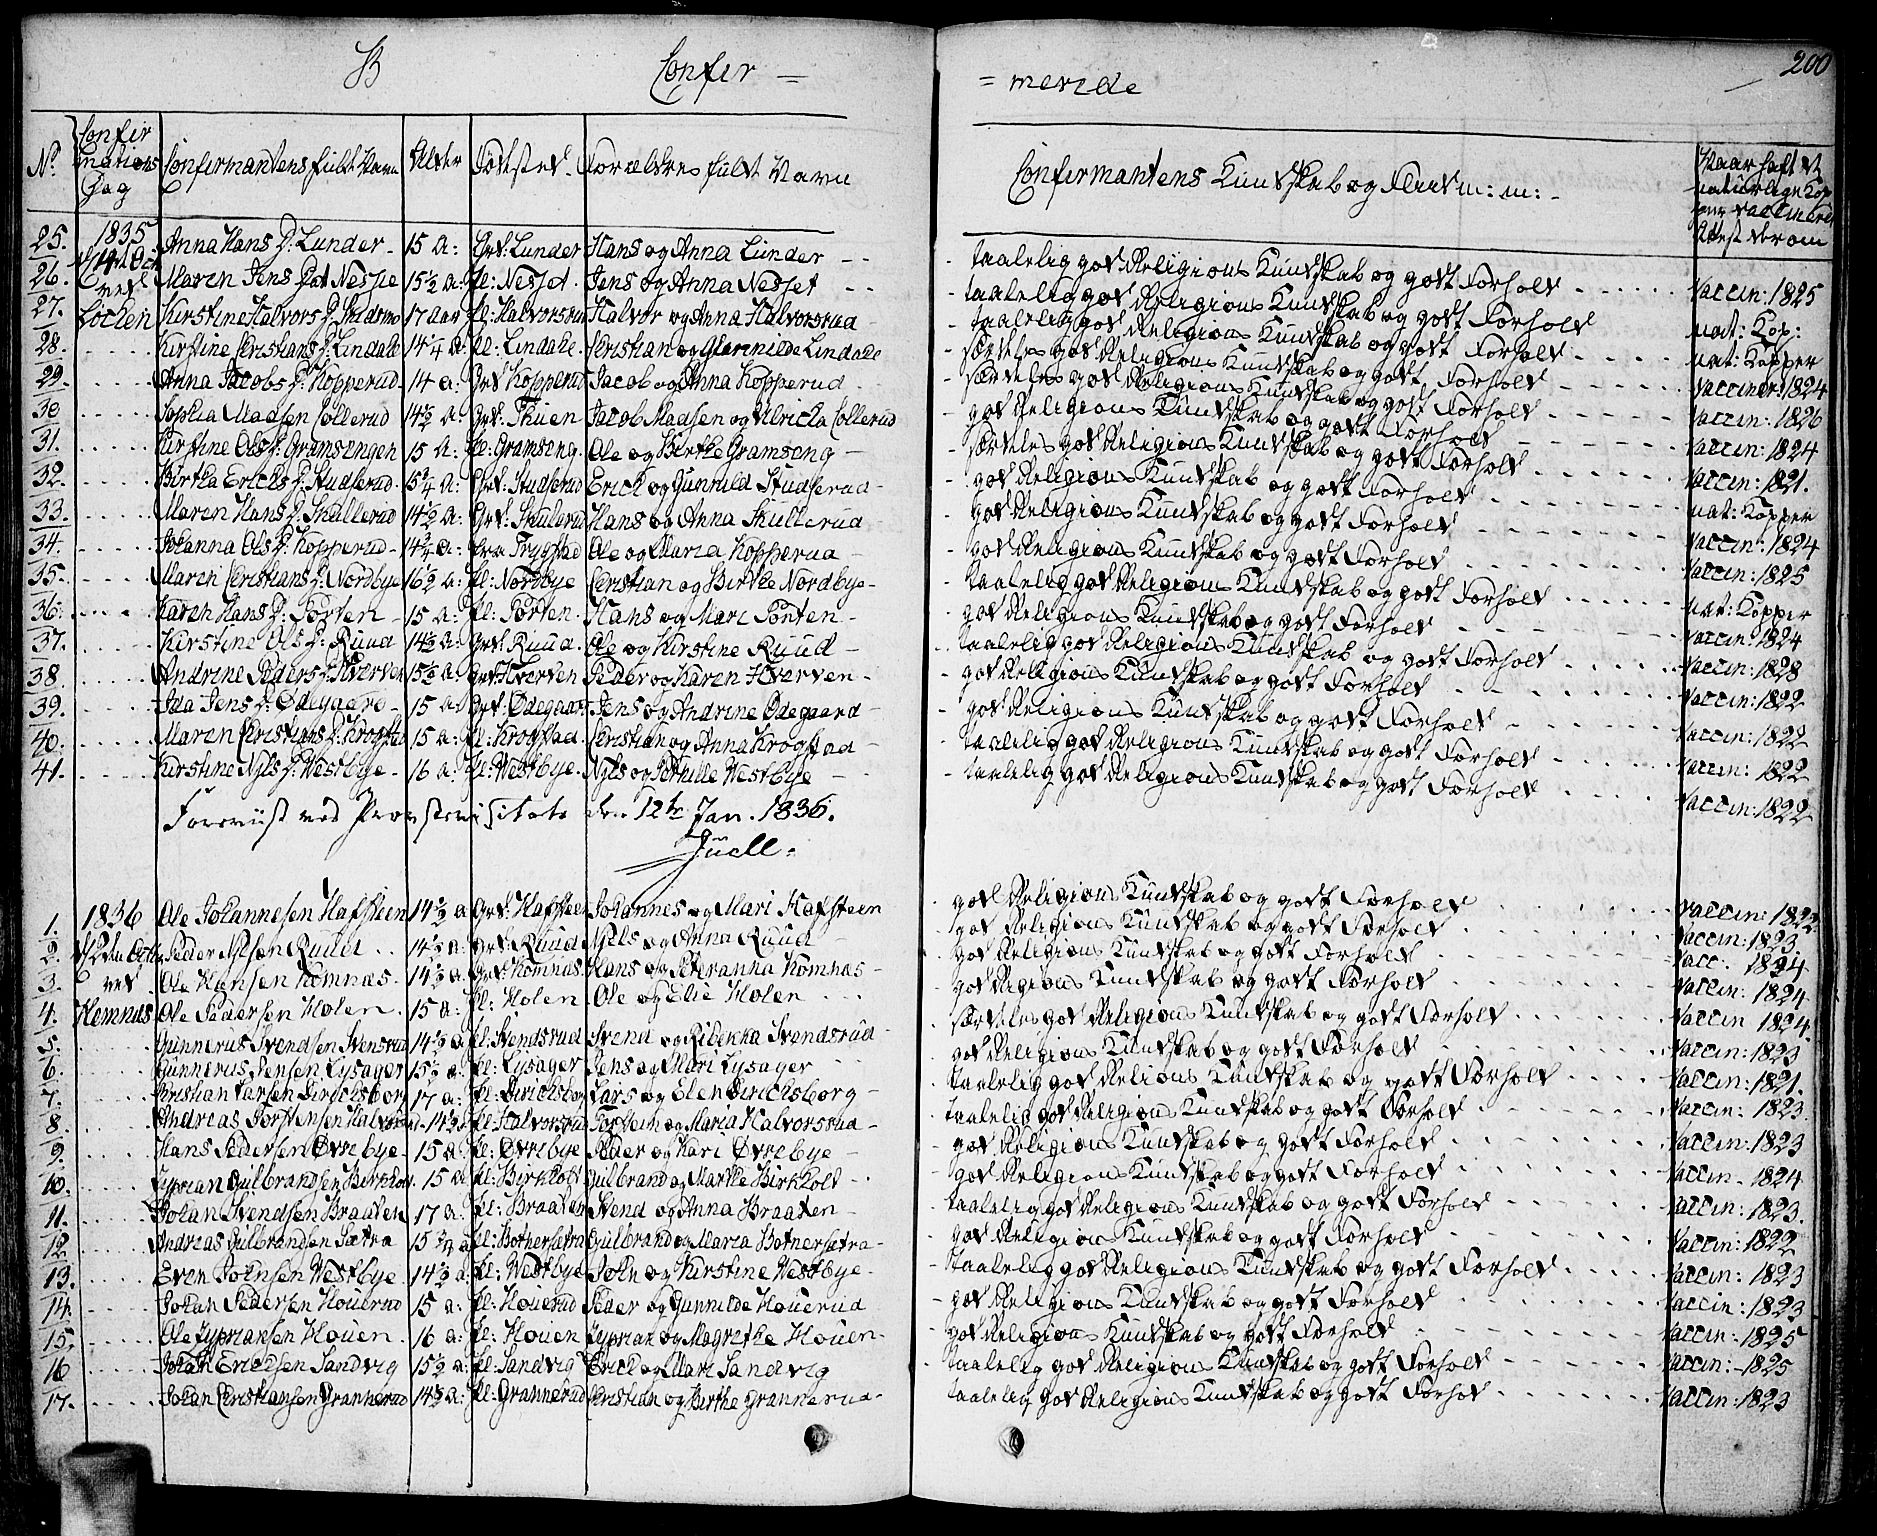 B Confir = = merede 200
No. Confirmations Dag Confirmantens fulde Navn Alder Fødested Forældres fulde Navn Confirmantens Kundskab og Flid m: m: Naar haft de naturlige Kopper vaccinered Attest derom
25. 1835 Anna Hans D: Lunder 15 a: Grd: Lunder Hans og Anna Lunder taalelig god Religions Kundskab og godt Forhold Vaccin: 1825
26. Maren Jens Dat Nesset 15½ a: Pl: Nesset Jens og Anna Nesset taalelig god Religions Kundskab og godt Forhold nat: Kop:
27. ved Løcken Kirstine Halvors D: 17 aar Pl: Halvorsrud Halvor og Anna Halvorsrud taalelig god Religions Kundskab og godt Forhold nat: Kopper
28. Kirstine Christians D: Lindale 14¼ a Pl: Lindale Christian og Lindale særdeles god Religions Kundskab og godt Forhold Vacciner: 1824
29. Anna Jacobs D: Kopperud 14 a: Grd Kopperud Jacob og Anna Kopperud særdeles god Religions Kundskab og godt Forhold Vaccin: 1826
30 Sophia Madsen Collerud 14½ a: Grd: Thuen Jacob Madsen og Ulricka Collerud god Religions Kundskab og godt Forhold Vaccin: 1824
31. Kirstine Ols D: Gramsengen 15 a: Pl: Gramseng Ole og Birthe Gramseng særdeles god Religions Kundskab og godt Forhold Vaccin: 1821.
32. Birtha Ericks D: Studserud 15¼ a: Grd: Studserud Erick og Gunnild Studserud god Religions Kundskab og godt Forhold nat: Kopper
33. Maren Hans D: Skullerud 14½ a: Grd: Skulerud Hans og Anna Skullerud god Religions Kundskab og godt Forhold Vaccin: 1824
34. Johanna Ols D: Kopperud 14¾ a: fra Trygstad Ole og Maria Kopperud god Religions Kundskab og godt Forhold Vaccin: 1825
35. Maren Christians D: Nordbye 16½ a: Pl: Nordbye Christian og Birthe Nordbye taalelig god Religions Kundskab og godt Forhold nat: Kopper
36. Karen Hans D: Porten 15 a: Pl: Porten Hans og Mari Porten god Religions Kundskab og godt Forhold Vaccin 1824
37. Kirstine Ols D: Ruud 14½ a: Grd: Ruud Ole og Kirstine Ruud taalelig god Religions Kundskab og godt Forhold Vaccin: 1828
38 Andrine Peders D: Hverven 15½ a: Grd Hverven Peder og Karen Hverven god Religions Kundskab og godt Forhold Vaccin: 1822
39. Ida Jens D: Ødegaard 15 a: Grd: Ødegaard Jens og Andrine Ødegaard god Religions Kundskab og godt Forhold Vaccin: 1822
40. Maren Christians D: Krogstad 15 a: Pl: Krogstad Christian og Anna Krogstad taalelig god Religions Kundskab og godt Forhold Vaccin: 1822
41. Kirstine Nils D: Westbye 16 a: Pl: Westbye Nils og Pernille Westbye taalelig god Religions Kundskab og godt Forhold Vaccin: 1822
Foreviist ved Provstevisitats den 12te Jan. 1836.
Juell.
1. 1836 Ole Johannesen Hafsteen 14½ a Grd: Hafsteen Johannes og Mari Hafsteen god Religions Kundskab og godt Forhold Vaccin: 1822
2. Peder Nilsen Ruud 14½ a: Grd: Ruud Nils og Anna Ruud god Religions Kundskab og godt Forhold Vaccin: 1823
3. ved Ole Hansen Komnæs 14½ a: Grd Komnæs Hans og Peteranna Komnæs god Religions Kundskab og godt Forhold Vacc: 1824
4. Hemnæs Ole Pedersen Holen 15 a: Pl: Holen Ole og Elie Holen god Religions Kundskab og godt Forhold Vaccin: 1824
5. Gunnerus Svendsen Svensrud 14½ a Pl: Svendsrud Svend og Ribekka Svendsrud særdeles god Religions Kundskab og godt Forhold Vaccin 1824.
6. Gunnerus Jensen Lysager 15½ a: Pl: Lysager Jens og Mari Lysager god Religions Kundskab og godt Forhold Vaccin: 1823
7. Christian Larsen Diricksborg 17 a: Pl: Diricksborg Lars og Elen Diricksborg taalelig god Relions Kundskab og godt Forhold Vaccin: 1821.
8. Andreas Torstensen Halvorsrud 14½ Pl: Halvorsrud Torsten og Maria Halvorsrud taalelig god Religions Kundskab og godt Forhold Vaccin: 1823.
9. Hans Pedersen Øvrebye 15 a: Pl: Øvrebye Peder og Kari Øvrebye god Religions Kundskab og godt Forhold Vaccin: 1823
10. Zyprian Gulbrandsen Birkholt 15 a Pl: Birkholt Gulbrand og Marthe Birkholt god Religions Kundskab og godt Forhold Vaccin 1824
11. Johan Svendsen Braaten 17 a: Pl: Braaten Svend og Anna Braaten taalelig god Religions Kundskab og godt Forhold Vaccin: 1823.
12 Andreas Gulbrandsen Sætra 15¼ a Pl: Botnersætra Gulbrand og Maria Botnersætra god Religions Kundskab og godt Forhold Vaccin: 1822
13. Even Johnsen Westbye 14½ a Pl: Westbye John og Kirstine Westbye taalelig god Religions Kundskab og godt Forhold Vaccin: 1823
14. Johan Pedersen Houerud 15 a: Pl: Houerud Peder og Gunnilde Houerud god Religions Kundskab og godt Forhold Vaccin: 1823
15. Ole Zypriansen Houen 16 a: Pl: Houen Zyprian og Magrethe Houen god Religions Kundskab og godt Forhold Vaccin: 1825
16 Johan Ericksen Sandvig 15½ a: Pl: Sandvig Erick og Mari Sandvig taalelig god Religions Kundskab og godt Forhold Vaccin: 1825
17. Johan Christiansen Grannerud 14½ a: Pl: Grannerud Christian og Birthe Grannerud taalelig god Religions Kundskab og godt Forhold Vaccin: 1823